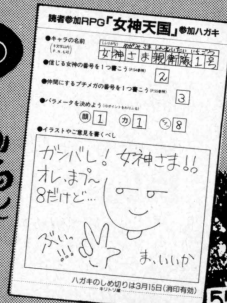 読者参加RPG「女神天国」参加ハガキ
●キャラの名前
女神さま親衛隊1号
●信じる女神の番号を1つ書こう
2
●仲間にするプチメガの番号を1つ書こう
3
●パラメータを決めよう
顔 1 力 1 8
●イラストやご意見を書くべし
ガンバレ!女神さま!!
オレ、まぷ〜
8だけど…
ぶいっ
!!!
ま、いいか
ハガキのしめ切りは3月15日(消印有効)
キリトリ線